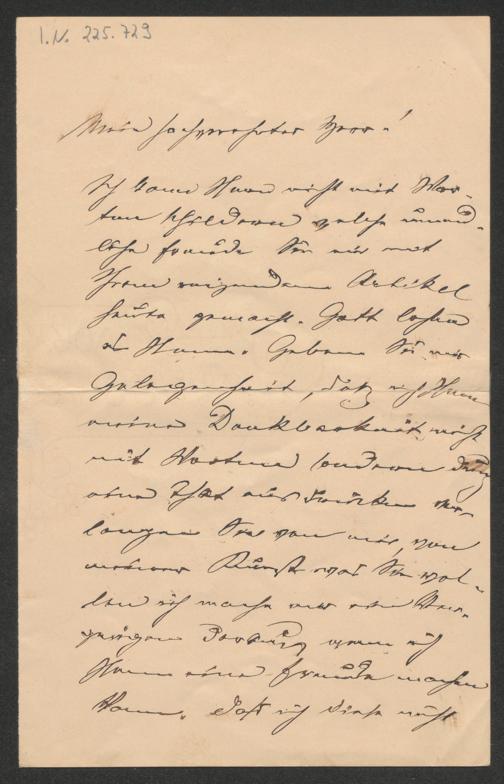 I.N. 225.729
Mein hochverehrter Herr!
Ich kann Ihnen nicht mit Wor-
ten schildern welche unend-
liche Freude Sie mir mit
Ihrem reizenden Artikel
heute gemacht. Gott lohne
es Ihnen. Geben Sie mir
Gelegenheit, daß ich Ihnen
meine Dankbarkeit nicht
mit Worten sondern durch
eine That ausdrücken ver-
langen Sie von mir, von
meiner Kunst was Sie wol-
len ich mache mir ein Ver-
gnügen daraus wenn ich
Ihnen eine Freude machen
kann. Daß ich diese nicht